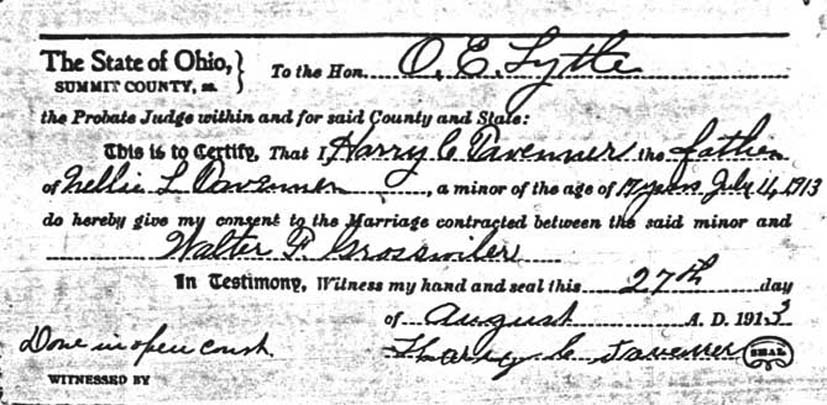 The State of Ohio, } To the Hon. O. E. Lytle
SUMMIT COUNTY, ss.
the Probate Judge within and for said County and State:
This is to Certify, That I Harry C Tavenner the father
of Nellie L Tavenner, a minor of the age of 17 years July 4, 1913
do hereby give my consent to the Marriage contracted between the said minor and
Walter F. Grosswiler
In Testimony, Witness my hand and seal this 27th day
of August A. D. 1913
Done in open court. Harry C Tavenner SEAL
WITNESSED BY